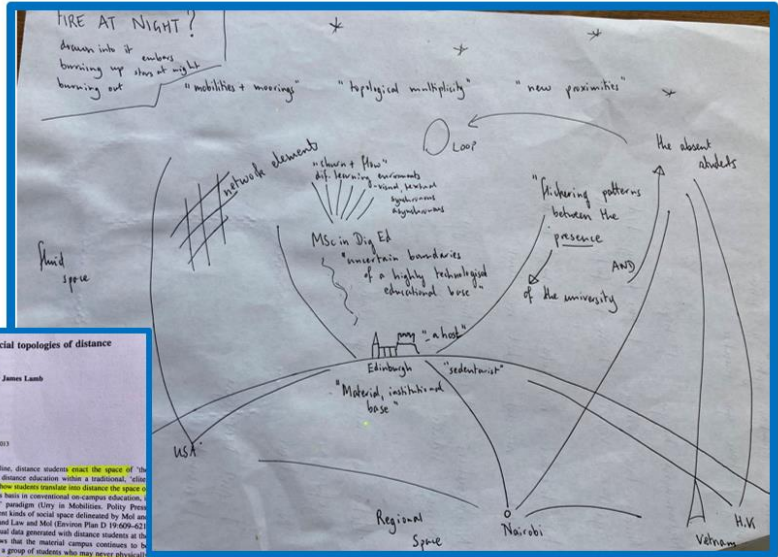 FIRE AT NIGHT?
drawn into it
embers
burning up stars at night
burning out
"mobilities + moorings"
"topological multiplicity"
"new proximities"
LOOP
the absent
students
network elements
"churn + flow"
dif. learning environments
- visual, textual
synchronous
asynchronous
"flickering patterns
between the
presence
AND
of the university
MSc in Dig Ed
"uncertain boundaries
of a highly technologised
educational base"
fluid
space
"a host"
Edinburgh
"sedentarist"
"Material, institutional
base"
USA
Regional
Space
Nairobi
Vietnam
H.K
cial topologies of distance
James Lamb
013
line, distance students enact the space of 'the
distance education within a traditional, 'elite
how students translate into distance the space o
s basis in conventional on-campus education, i
' paradigm (Urry in Mobilities. Polity Press
ent kinds of social space delineated by Mol and
nd Law and Mol (Environ Plan D 19:609–621
ual data generated with distance students at the
ws that the material campus continues to be
a group of students who may never physically